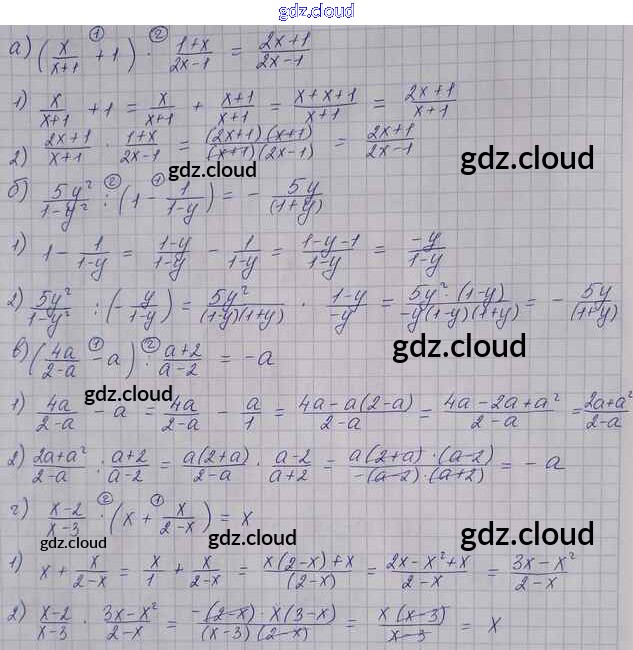 gdz.cloud
а) (x/(x+1) + 1) ① · ② (1+x)/(2x-1) = (2x+1)/(2x-1)
1) x/(x+1) + 1 = x/(x+1) + (x+1)/(x+1) = (x+x+1)/(x+1) = (2x+1)/(x+1)
2) (2x+1)/(x+1) · (1+x)/(2x-1) = ((2x+1)(x+1))/((x+1)(2x-1)) = (2x+1)/(2x-1)
gdz.cloud
gdz.cloud
б) 5y²/(1-y²) ② : (1 - ① 1/(1-y)) = - 5y/(1+y)
1) 1 - 1/(1-y) = (1-y)/(1-y) - 1/(1-y) = (1-y-1)/(1-y) = -y/(1-y)
gdz.cloud
2) 5y²/(1-y²) : (- y/(1-y)) = 5y²/((1-y)(1+y)) · (1-y)/(-y) = (5y² · (1-y))/(-y(1-y)(1+y)) = - 5y/(1+y)
в) (4a/(2-a) ① - a) ② : (a+2)/(a-2) = -a
gdz.cloud
gdz.cloud
1) 4a/(2-a) - a = 4a/(2-a) - a/1 = (4a-a(2-a))/(2-a) = (4a-2a+a²)/(2-a) = (2a+a²)/(2-a)
2) (2a+a²)/(2-a) : (a+2)/(a-2) = a(2+a)/(2-a) · (a-2)/(a+2) = (a(2+a)·(a-2))/(-(a-2)·(a+2)) = -a
г) (x-2)/(x-3) ② : (x + ① x/(2-x)) = x
gdz.cloud
gdz.cloud
gdz.cloud
1) x + x/(2-x) = x/1 + x/(2-x) = (x(2-x)+x)/(2-x) = (2x-x²+x)/(2-x) = (3x-x²)/(2-x)
2) (x-2)/(x-3) · (3x-x²)/(2-x) = (-(2-x)·x(3-x))/((x-3)(2-x)) = x(x-3)/(x-3) = x
gdz.cloud